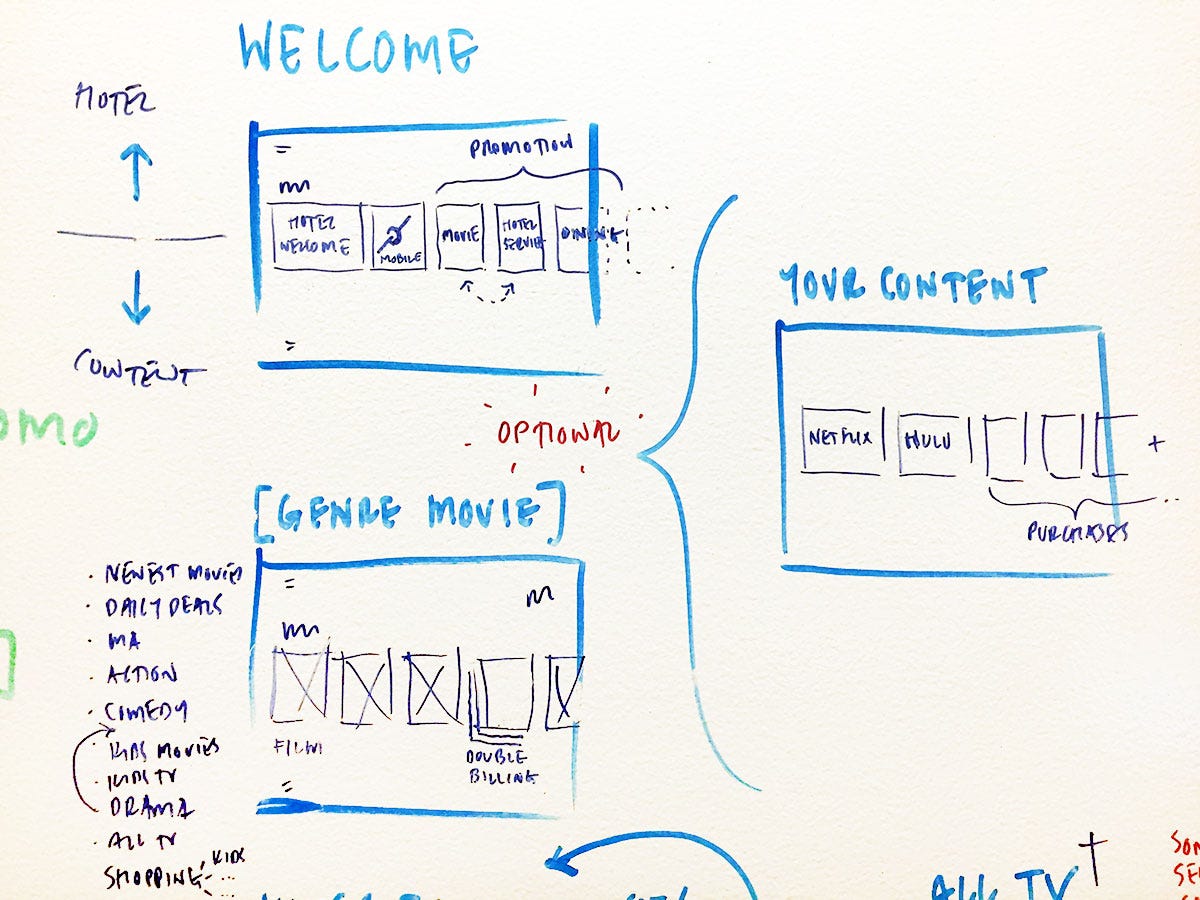 WELCOME
HOTEL
CONTENT
PROMOTION
HOTEL
WELCOME
MOBILE
MOVIE
HOTEL
SERVIE
DINING
OPTIONAL
YOUR CONTENT
NETFLIX
HULU
+
PURCHASES
OMO
[GENRE MOVIE]
· NEWEST MOVIES
· DAILY DEALS
· MA
· ACTION
· COMEDY
· KIDS MOVIES
· KIDS TV
DRAMA
· ALL TV
SHOPPING
KIDS
...
FILM
DOUBLE
BILLING
ALL TV
SOM
SE